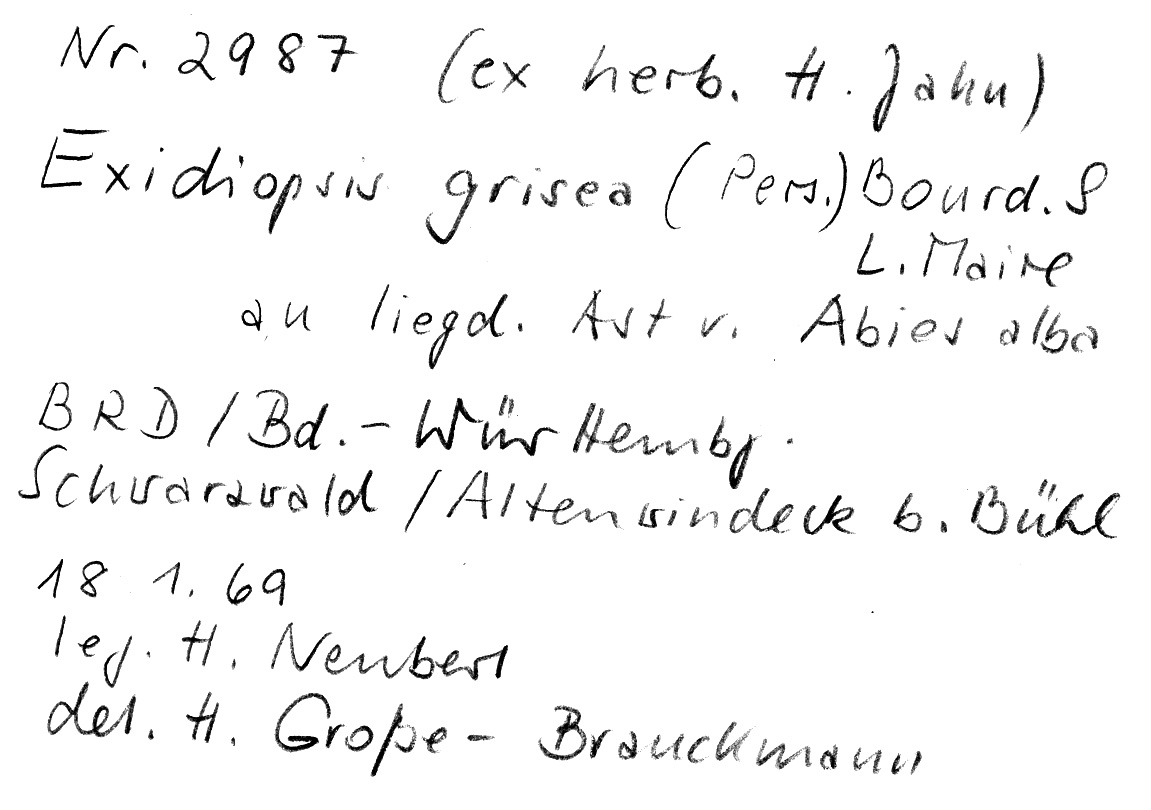 Nr. 2987 (ex herb. H. Jahn)
Exidiopsis grisea (Pers.) Bourd. &
L. Maire
an liegd. Ast v. Abies alba
BRD / Bd.-Württembg.
Schwarzwald / Altenwindeck b. Bühl
18 1. 69
leg. H. Neubert
det. H. Große-Brauckmann